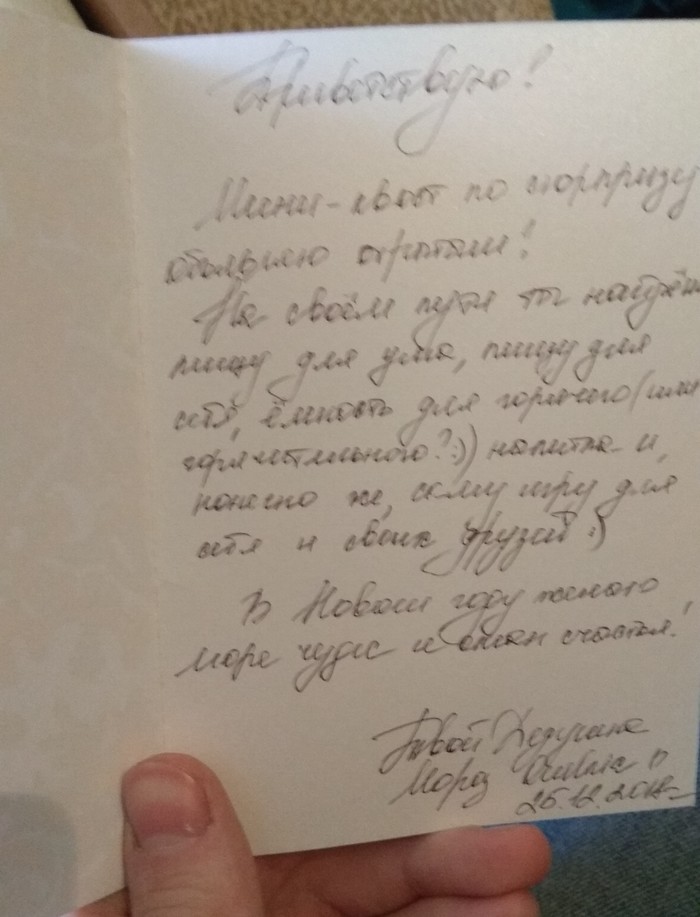 Приветствую!
Мини-квест по сюрпризу
объявляю открытым!
На своём пути ты найдёшь
пищу для ума, пищу для
себя, ёмкость для горячего (или
горячительного? :)) напитка и,
конечно же, саму игру для
себя и своих друзей :)
В Новом году желаю
море чудес и океан счастья!
Твой Дедушка
Мороз
25.12.2018